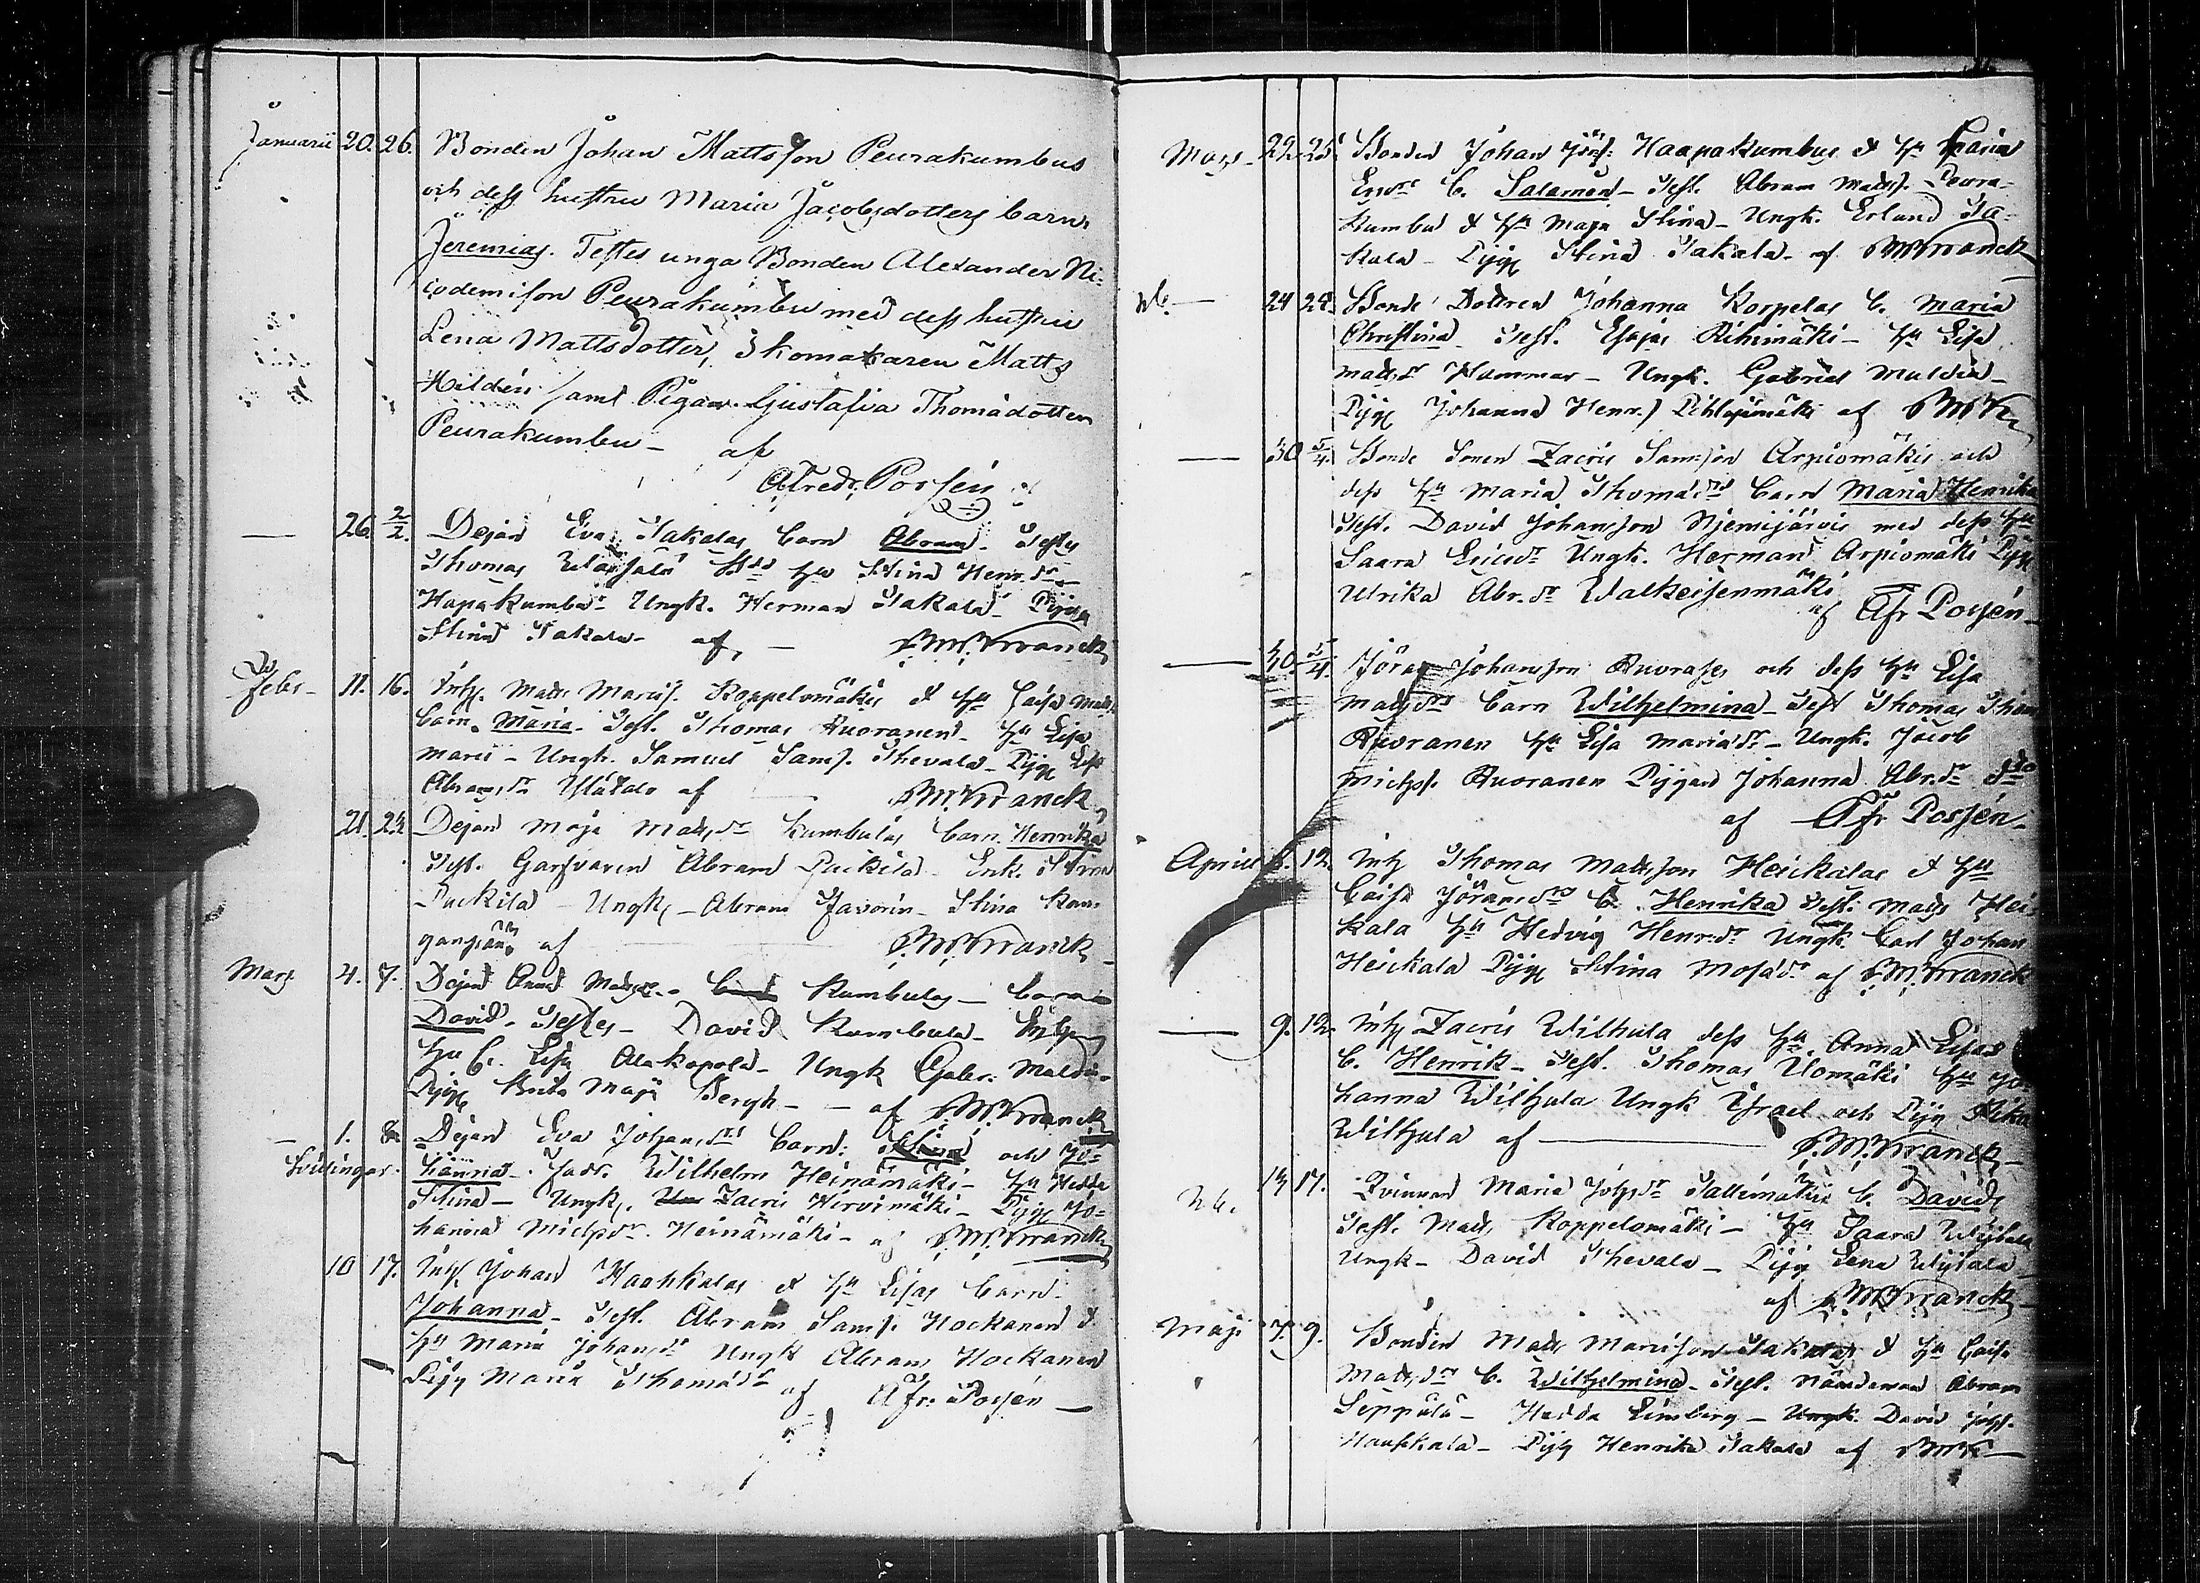 Januarii 20. 26. Bonden Johan Mattsson Peurakumbus
och dess hustru Maria Jacobsdotters barn
Jeremias. Testes unga Bonden Alexander Ni-
codemison Peurakumbu med dess hustru
Lena Mattsdotter, Skomakaren Matts
Hildén samt Pigan Gustafva Thomädotter
Peurakumbu – af
Alfred Possén
— 26. 2/2. Pejan Eva Takalas barn Abram. Testes
Thomas hu Stina Henr.dr
Hapakumbu Ungk. Herman Takala Pijga
Stina Takala – af, — Franck
Febr – 11. 16. Inh. Matts Koppelomäkis & hu Caisa Matts
barn Maria. Test. Thomas Ruoranen – hu Lisa
Marii – Ungk. Samuel Sams. Thevala – Pijg Lisa
Abramsdr af — Franck
21. 24 Pejan Maja Matsdr Kumbulas barn Henrika
Test. Garfvaren Abram Puckila Enk. Stina
Puckila – Ungk. – Abram Favorin – Stina
af — Franck
Mars 4. 7. Pejan Anna Kumbulas – barn
David. Testes – David Kumbula
hu C. Lisa Alakopola – Ungk Gabr. Maldin
Pijg Brita Maja Bergh – – af Franck
– 1. 8. Pejan Eva Johansdrs barn: Stina och Jo-
Tvillingar. hanna. Fadr. Wilhelm Heinämäki – hu Hedda
Stina – Ungk. Zacris Hirvimäki – Pijg Jo-
hanna Michsdr. Heinämäki – af Franck
10 17. Inh Johan Haahkalas & hu Lisas barn
Johanna – Test. Abram Sams. Hockanen &
hu Maria Johansdr Ungk Abram Hockanen
Pijg Maria Thomädr
af Afr. Possén —
Mars – 22. 25. Bonden Johan Haapakumbus & hu Caisa
Ericdrs C. Salamon – Test. Abram Matsss. Peura-
kumbu & hu Maja Stina – Ungk. Erland Ta-
kala – Pijg Stina Takala – af Franck
24 24. Bonde Dottren Johanna Korpelas C. Maria
Christina. Test. Esajas Riihimäki – hu Lisa
Matsdr Hammar – Ungk. Gabriel Maldin –
Pijg Johanna Henr.) Pihlajamäki af
— 30 5/4. Bonde Sonen Zacris Samsson Arpiomäkis och
dess hu Maria Thomädrs barn Maria Henrika
Test. David Johansson Niemijärvi med dess hu
Saara Ericsdr Ungk. Herman Arpiomäki Pijg
Ulrika Abr.dr Walkeisenmäki
af Afr Possén –
— 30. 5/4. Jöran Johansson Ruorases och dess hu Lisa
Matsdrs barn Wilhelmina – Test Thomas Thom
Ruoranen hu Lisa Mariädr – Ungk. Jacob
Michss. Ruoranen Pijgan Johanna Abr.dr
af Afr Possén –
April 12. Inh Thomas Matsson Heickalas & hu
Caisa Jöransdrs C. Henrika Test. Mats Hei-
kala hu Hedvig Henr.dr Ungk Carl Johan
Heickala Pijg Stina Mosädr af Franck
— 9. 12. Inh Zacris Wilhula dess hu Anna Lisas
C. Henrik – Test. Thomas Ilomäki hu Jo-
hanna Wilhula Ungk Israel och Pijg
Wilhula af — Franck –
14 17. Qvinnan Maria Johsdr C. David
Test. Mats Koppelomäki – hu Saara
Ungk – David Thevala – Pijg Lena
af Franck –
Maji 7. 9. Bonden Mats Mariison Takalas & hu Caisa
Matsdrs C. Wilhelmina – Test. Nämdeman Abram
Seppälä – Hedda Limberg – Ungk. David Johss.
Haahkala – Pijg Henrika Takala af